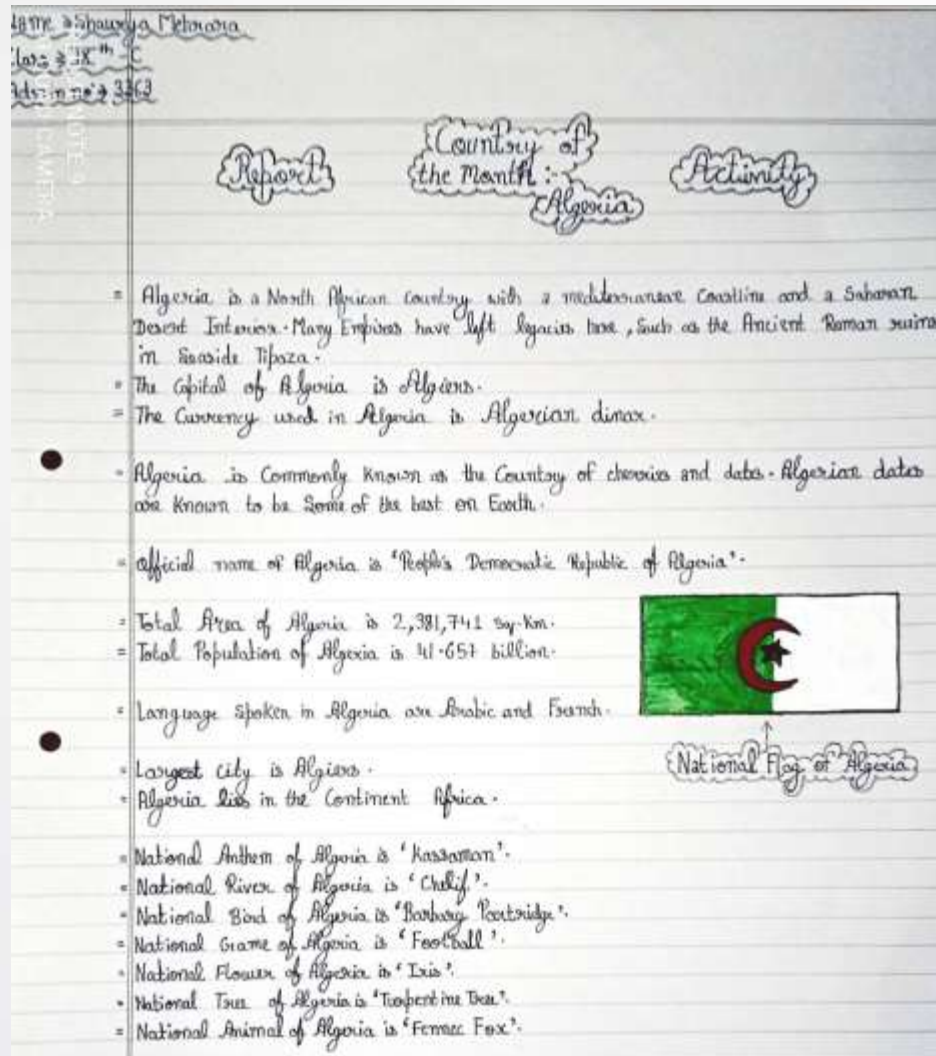 Name → Shaurya
Class → IX th - C
Adm:n no → 3363
Report
Country of
the Month :-
Algeria
Activity
= Algeria is a North African Country with a mediterranean Coastline and a Saharan
Desert Interior. Many Empires have left legacies here, Such as the Ancient Roman ruins
in Seaside Tipaza.
= The Capital of Algeria is Algiers.
= The Currency used in Algeria is Algerian dinar.
= Algeria is Commonly Known as the Country of cherries and dates. Algerian dates
are Known to be Some of the best on Earth.
= Official name of Algeria is 'People's Democratic Republic of Algeria'.
= Total Area of Algeria is 2,381,741 Sq.Km.
= Total Population of Algeria is 41.657 billion.
= Language Spoken in Algeria are Arabic and French.
= Largest city is Algiers.
= Algeria lies in the Continent Africa.
National Flag of Algeria
= National Anthem of Algeria is 'Kassaman'.
= National River of Algeria is 'Chelif'.
= National Bird of Algeria is 'Barbary Partridge'.
= National Game of Algeria is 'Football'.
= National Flower of Algeria is 'Iris'.
= National Tree of Algeria is 'Turpentine Tree'.
= National Animal of Algeria is 'Fennec Fox'.